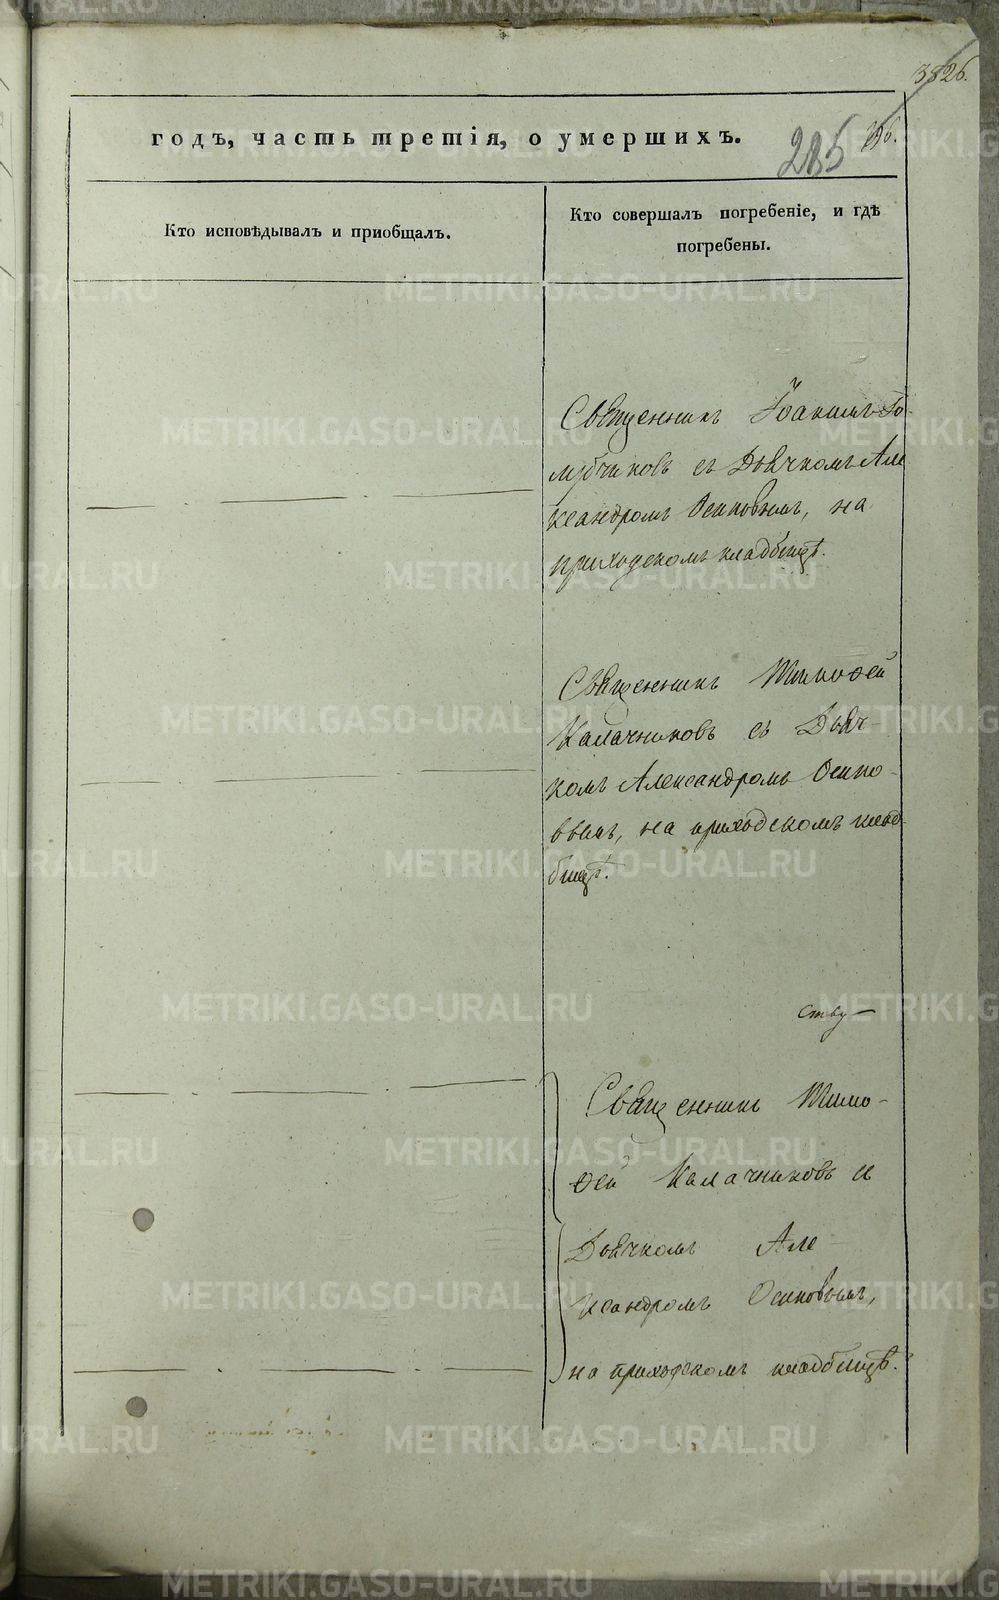 годъ, часть третія, о умершихъ.
285
Кто исповѣдывалъ и приобщалъ.
Кто совершалъ погребеніе, и гдѣ
погребены.
Священникъ Іоакимъ Го-
лубчиковъ съ Дьячкомъ Але
ксандромъ Осиповымъ, на
приходскомъ кладбищѣ.
Священникъ Тимоѳей
Калачниковъ съ Дьяч-
комъ Александромъ Осипо-
вымъ, на приходскомъ клад-
бищѣ.
ству —
Священникъ Тимо-
ѳей Калачниковъ и
Дьячкомъ Але-
ксандромъ Осиповымъ,
на приходскомъ кладбищѣ.
METRIKI.GASO-URAL.RU